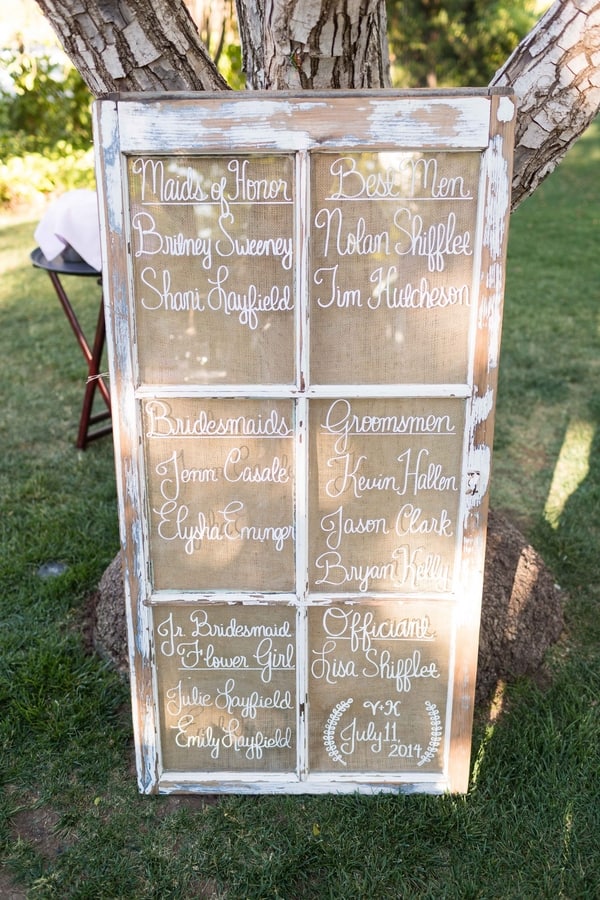 Maids of Honor
Britney Sweeney
Shani Layfield
Best Men
Nolan Shifflet
Tim Hutcheson
Bridesmaids
Jenn Casale
Elysha Eminger
Groomsmen
Kevin Hallen
Jason Clark
Bryan Kelly
Jr. Bridesmaid
Flower Girl
Julie Layfield
Emily Layfield
Officiant
Lisa Shifflet
V+K
July 11,
2014